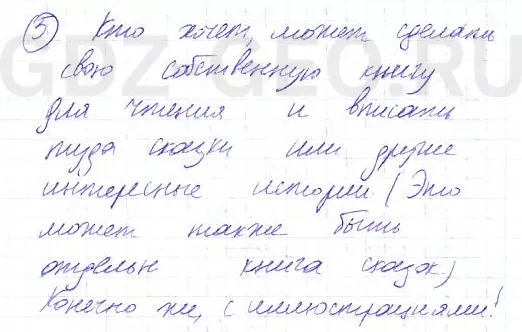 5) Кто хочет, может сделать
свою собственную книгу
для чтения и вписать
туда сказки или другие
интересные истории. (Это
может также быть
отдельн книга сказок)
Конечно же, с иллюстрациями!
GDZ-GLOBO.RU